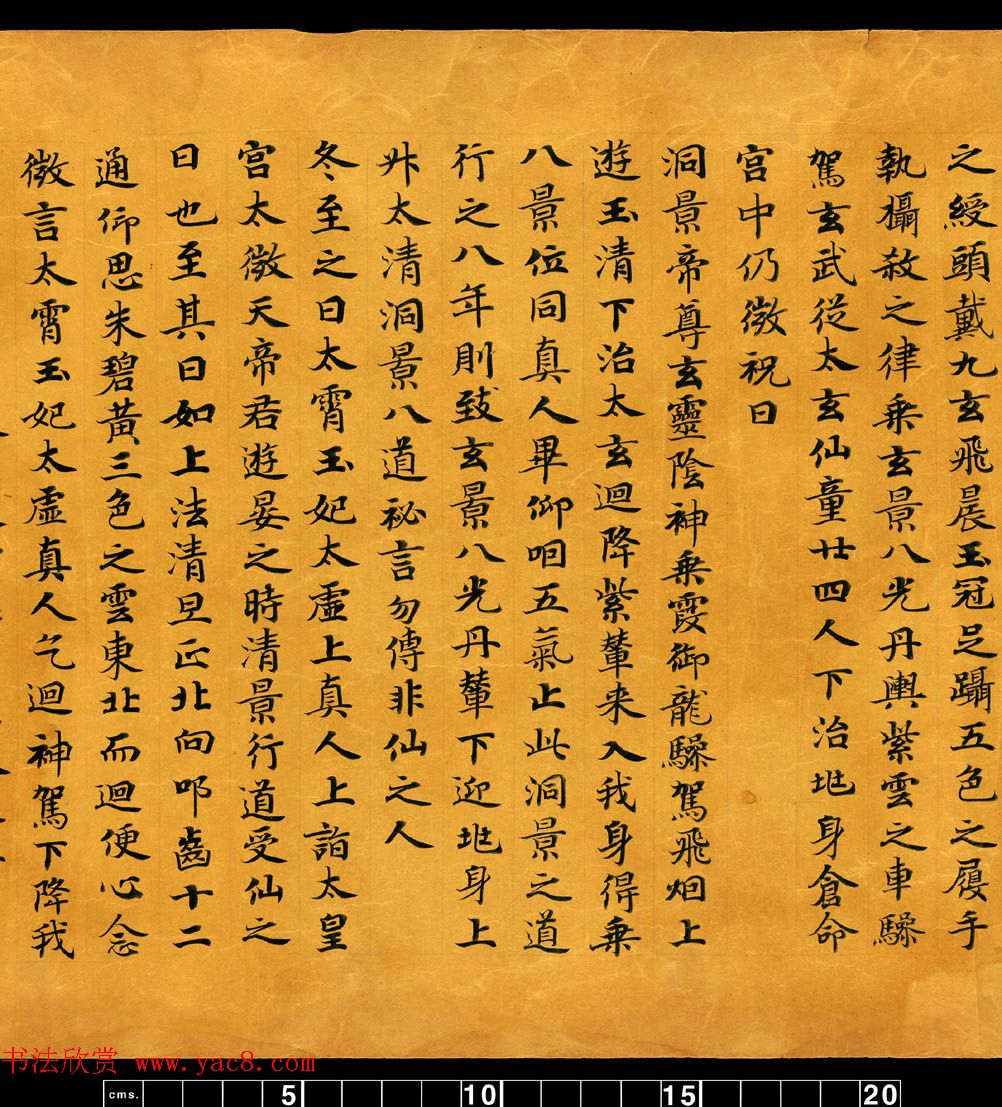 之綬頭戴九玄飛晨玉冠足躡五色之履手
執攝殺之律乘玄景八光丹輿紫雲之車驂
駕玄武從太玄仙童廿四人下治兆身倉命
宮中仍微祝曰
洞景帝尊玄靈陰神乘霞御龍驂駕飛烟上
遊玉清下治太玄迴降紫輦来入我身得乘
八景位同真人畢仰咽五氣止此洞景之道
行之八年則致玄景八光丹輦下迎兆身上
升太清洞景八道祕言勿傳非仙之人
冬至之日太霄玉妃太虛上真人上詣太皇
宮太微天帝君遊晏之時清景行道受仙之
日也至其日如上法清旦正北向叩齒十二
通仰思朱碧黃三色之雲東北而迴便心念
微言太霄玉妃太虛真人乞迴神駕下降我
书法欣赏 www.yac8.com
cms. 5 10 15 20